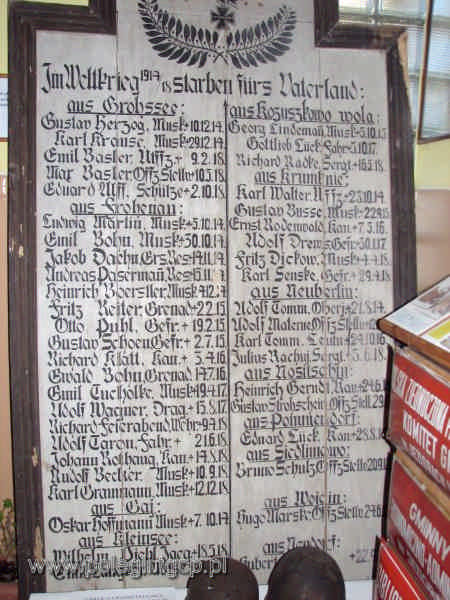 Im Weltkrieg 1914/18 starben fürs Vaterland:
aus Grobssee:
Gustav Herzog, Musk + 10.12.14.
Karl Krause, Musk + 29.12.14.
Emil Basler, Uffz + 9.2.18
Max Basler, Offz Stellv + 10.5.18
Eduard Ulff, Schütze + 2.10.18
aus Frohenan:
Ludwig Martin, Musk + 5.10.14
Emil Bohn, Musk + 30.10.14
Jakob Daehn, Ers Res + 9.11.14
Andreas Paserman, Res 15.11
Heinrich Boerstler, Musk + 12.
Fritz Reiter, Grenad + 2.2.15.
Otto Puhl, Gefr. + 19.2.15
Gustav Schoen, Gefr. + 2.7.15
Richard Klatt, Kan. + 5.4.16
Ewald Bohn, Grenad 14.7.16
Emil Tucholke, Musk 19.4.17
Adolf Wagner, Drag. + 15.8.17
Richard Feierabend, Wehr + 9.4.18
Adolf Taron, Fahr + 21.6.18
Johann Rothang, Kan. + 14.8.18
Rudolf Becker, Musk + 10.9.18
Karl Gramann, Musk + 12.12.18
aus Gaj:
Oskar Hoffmann Musk + 7.10.14
aus Kleinsee:
Wilhelm Diehl, Jaeg + 18.5.18
aus Kozuszkowo wola:
Georg Lindeman, Musk + 5.10.15
Gottlieb Lück, Fahr + 5.10.17
Richard Radke, Sergt + 16.5.18
aus Krumknie:
Karl Walter, Uffz + 23.10.14
Gustav Busse, Musk + 22.9.15
Ernst Rodenwald, Kan + 7.5.16
Adolf Drews, Gefr. 30.1.17
Fritz Dickow, Musk + 4.4.18
Karl Senske, Gefr. + 29.4.18
aus Neuberlin:
Adolf Tomm, Oberj + 21.8.14
Adolf Materne, Offz Stellv
Karl Tomm, Leutn + 24.10.16
Julius Rachuj, Sergt + 3.6.18
aus Nosilschin:
Heinrich Gernd, Kan + 24.6.
Gustav Strohschein, Offz Stell. 29.
Eduard Lück, Kan + 28.8.
aus Siedlimowo:
Bruno Schulz, Offz Stellv 20.9.
aus Wojcin:
Hugo Marske, Offz Stellv 24.6
aus Neudorf:
www.polegliwgp.pl
KOMITET
GMINNY